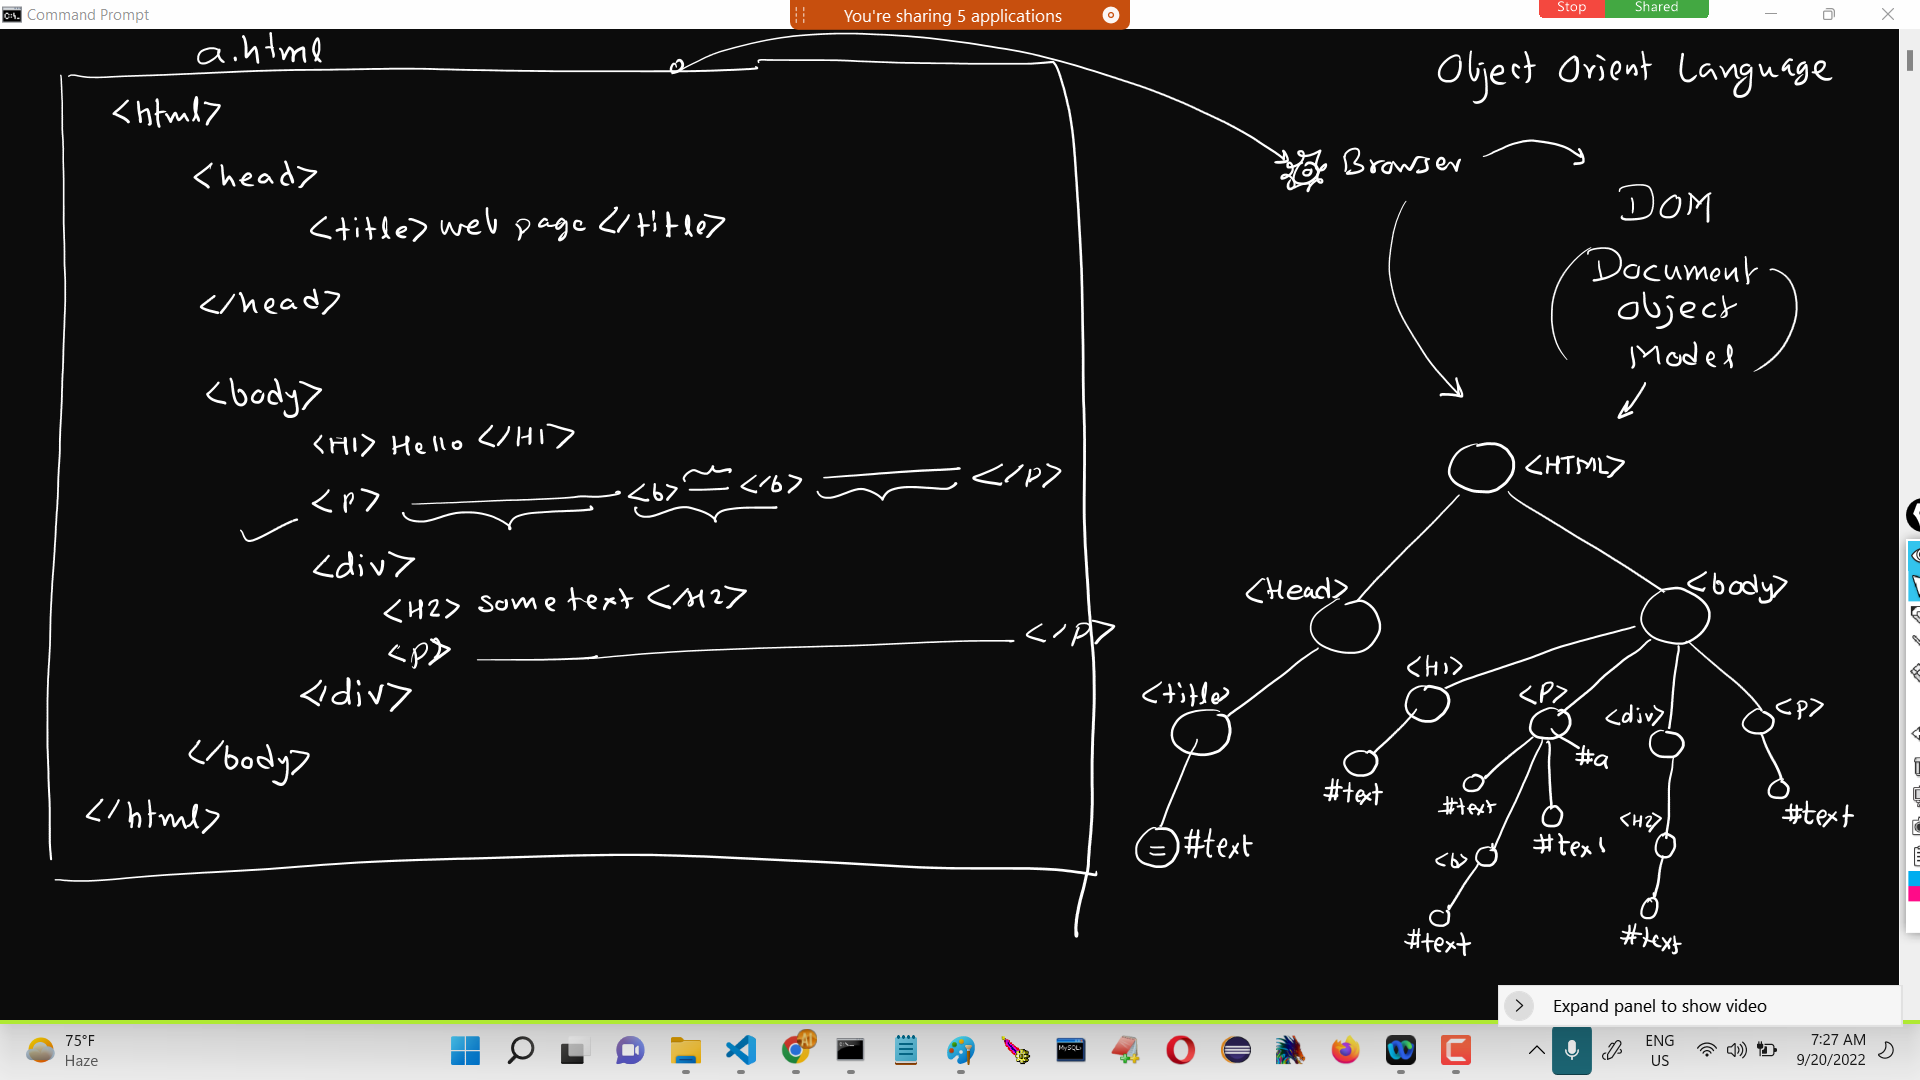 Command Prompt
You're sharing 5 applications
Stop
Shared
a.html
<html>
<head>
<title> web page </title>
</head>
<body>
<H1> Hello </H1>
<p> <b> </b> </p>
<div>
<H2> some text </H2>
<p> </p>
</div>
</body>
</html>
Object Orient Language
Browser
DOM
(Document
Object
Model)
<HTML>
<Head>
<body>
<title>
<H1>
<P>
<div>
<p>
#text
#text
#text
#a
#text
<b>
#text
<H2>
#text
#text
Expand panel to show video
75°F
Haze
ENG
US
7:27 AM
9/20/2022